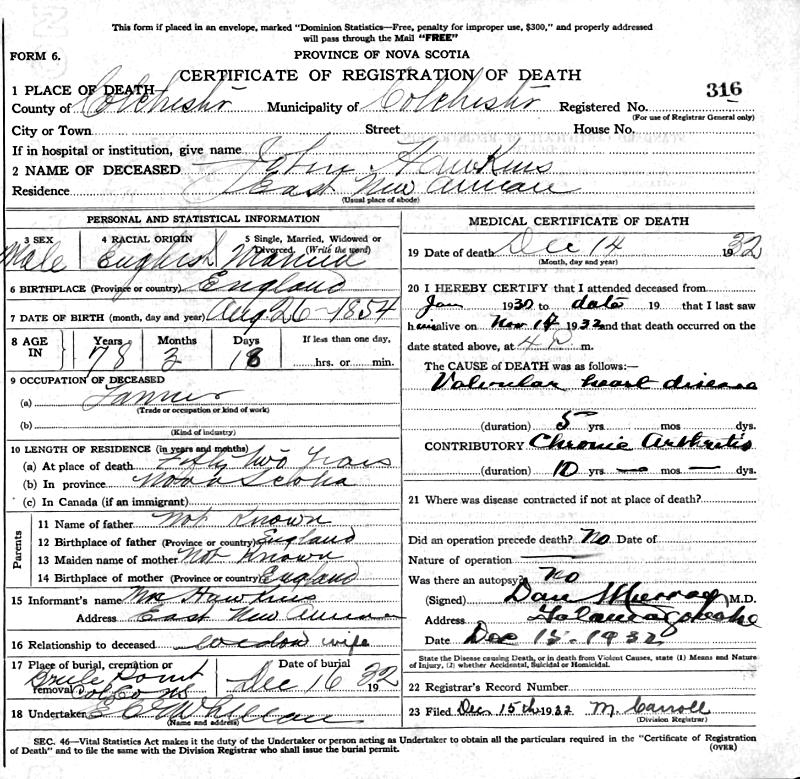 This form if placed in an envelope, marked "Dominion Statistics—Free, penalty for improper use, $300," and properly addressed
will pass through the Mail "FREE"
FORM 6.
PROVINCE OF NOVA SCOTIA
CERTIFICATE OF REGISTRATION OF DEATH
1 PLACE OF DEATH
316
County of Colchester Municipality of Colchester Registered No.
(For use of Registrar General only)
City or Town Street House No.
If in hospital or institution, give name
2 NAME OF DECEASED John Hawkins
Residence East New Annan
(Usual place of abode)
PERSONAL AND STATISTICAL INFORMATION
3 SEX 4 RACIAL ORIGIN 5 Single, Married, Widowed or Divorced. (Write the word)
Male English Married
6 BIRTHPLACE (Province or country) England
7 DATE OF BIRTH (month, day and year) Aug. 26 - 1854
8 AGE IN Years Months Days If less than one day,
78 3 18 hrs. or min.
9 OCCUPATION OF DECEASED
(a) Farmer
(Trade or occupation or kind of work)
(b)
(Kind of industry)
10 LENGTH OF RESIDENCE (in years and months)
(a) At place of death Fifty two years
(b) In province Nova Scotia
(c) In Canada (if an immigrant)
Parents
11 Name of father Not Known
12 Birthplace of father (Province or country) England
13 Maiden name of mother Not Known
14 Birthplace of mother (Province or country) England
15 Informant's name Mrs Hawkins
Address East New Annan
16 Relationship to deceased wife
17 Place of burial, cremation or removal Date of burial
Brule Point Col Co NS Dec 16 1932
18 Undertaker
(Name and address)
MEDICAL CERTIFICATE OF DEATH
19 Date of death Dec 14 1932
(Month, day and year)
20 I HEREBY CERTIFY that I attended deceased from
Jan 1930 to date 19 that I last saw
him alive on Nov 14 1932 and that death occurred on the
date stated above, at 4 P m.
The CAUSE of DEATH was as follows:
Valvular heart disease
(duration) 5 yrs. mos. dys.
CONTRIBUTORY Chronic Arthritis
(duration) 10 yrs — mos — dys.
21 Where was disease contracted if not at place of death?
Did an operation precede death? No Date of
Nature of operation
Was there an autopsy? No
(Signed) Dan Murray M.D.
Address Tatamagouche
Date Dec 15. 1932
State the Disease causing Death, or in death from Violent Causes, state (1) Means and Nature
of Injury, (2) whether Accidental, Suicidal or Homicidal.
22 Registrar's Record Number
23 Filed Dec 15th 1932 M. Carroll
(Division Registrar)
SEC. 46—Vital Statistics Act makes it the duty of the Undertaker or person acting as Undertaker to obtain all the particulars required in the "Certificate of Registration
of Death" and to file the same with the Division Registrar who shall issue the burial permit.
(OVER)